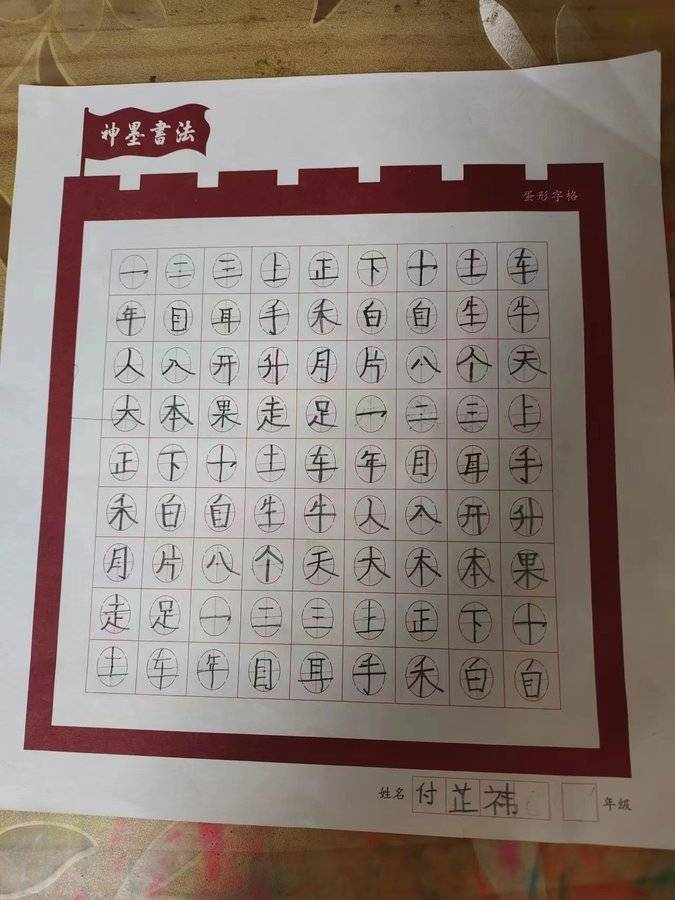 神墨書法
蛋形字格
一二三上正下十土车
年目耳手禾白自生牛
人入开升月片八个天
大本果走足一二三上
正下十土车年月耳手
禾白自生牛人入开升
月片八个天大木本果
走足一二三上正下十
土车年目耳手禾白自
姓名 付芷祎 年级